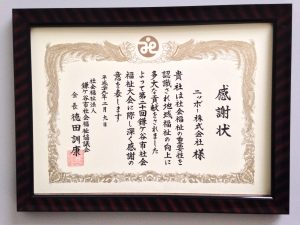 感謝状
ニッポー株式会社 様
貴社は社会福祉の重要性を
認識され地域福祉の向上に
多大な貢献をされました
よって第二十回鎌ケ谷市社会
福祉大会に際し深く感謝の
意を表します
平成二十九年二月九日
社会福祉法人
鎌ケ谷市社会福祉協議会
会長 徳田訓康